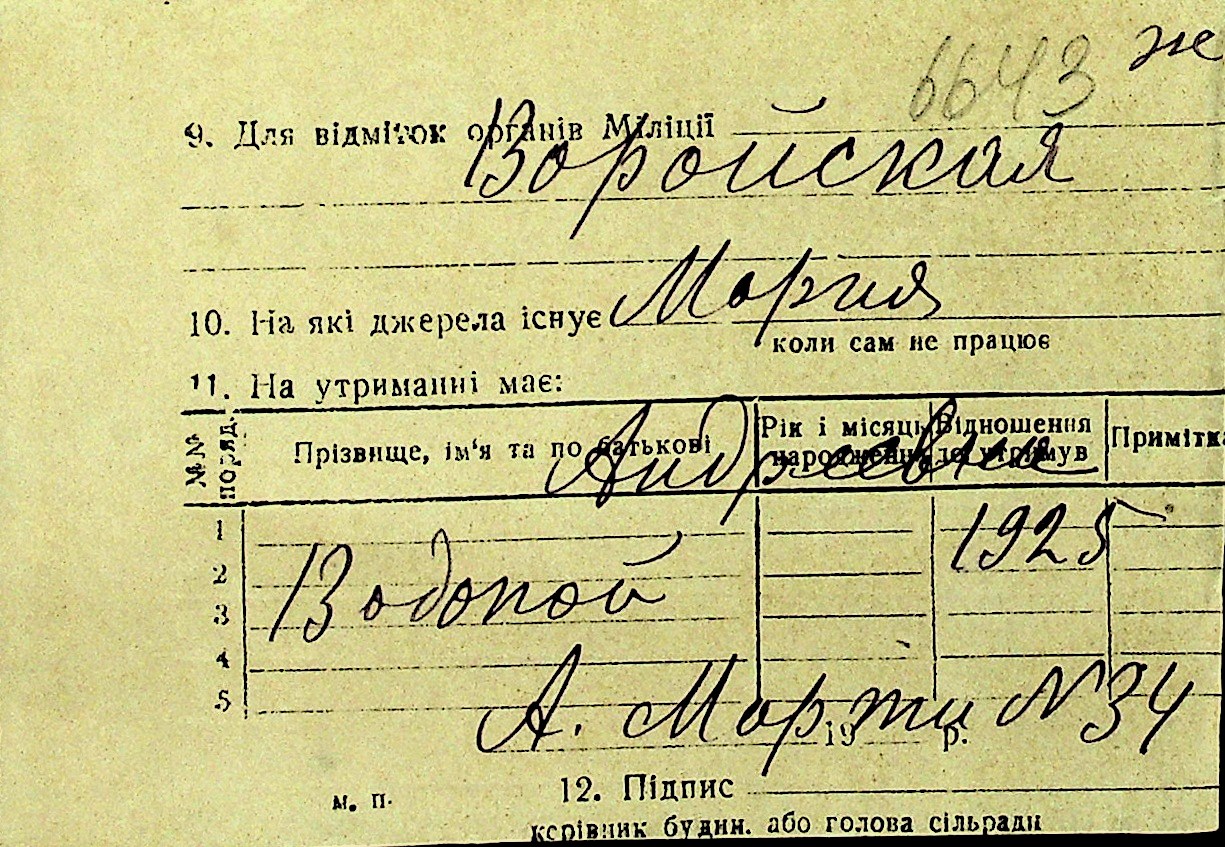 6643 же
9. Для відміток органів Міліції
Воройская
10. На які джерела існує Мария
коли сам не працює
11. На утриманні має:
№№ поряд. Прізвище, ім'я та по батькові Рік і місяць народження Відношення до утримув Примітка
Андреевна
1 1925
2 Водопой
3
4
5
А. Марти N 34
19 р.
м. п. 12. Підпис
керівник будин. або голова сільради